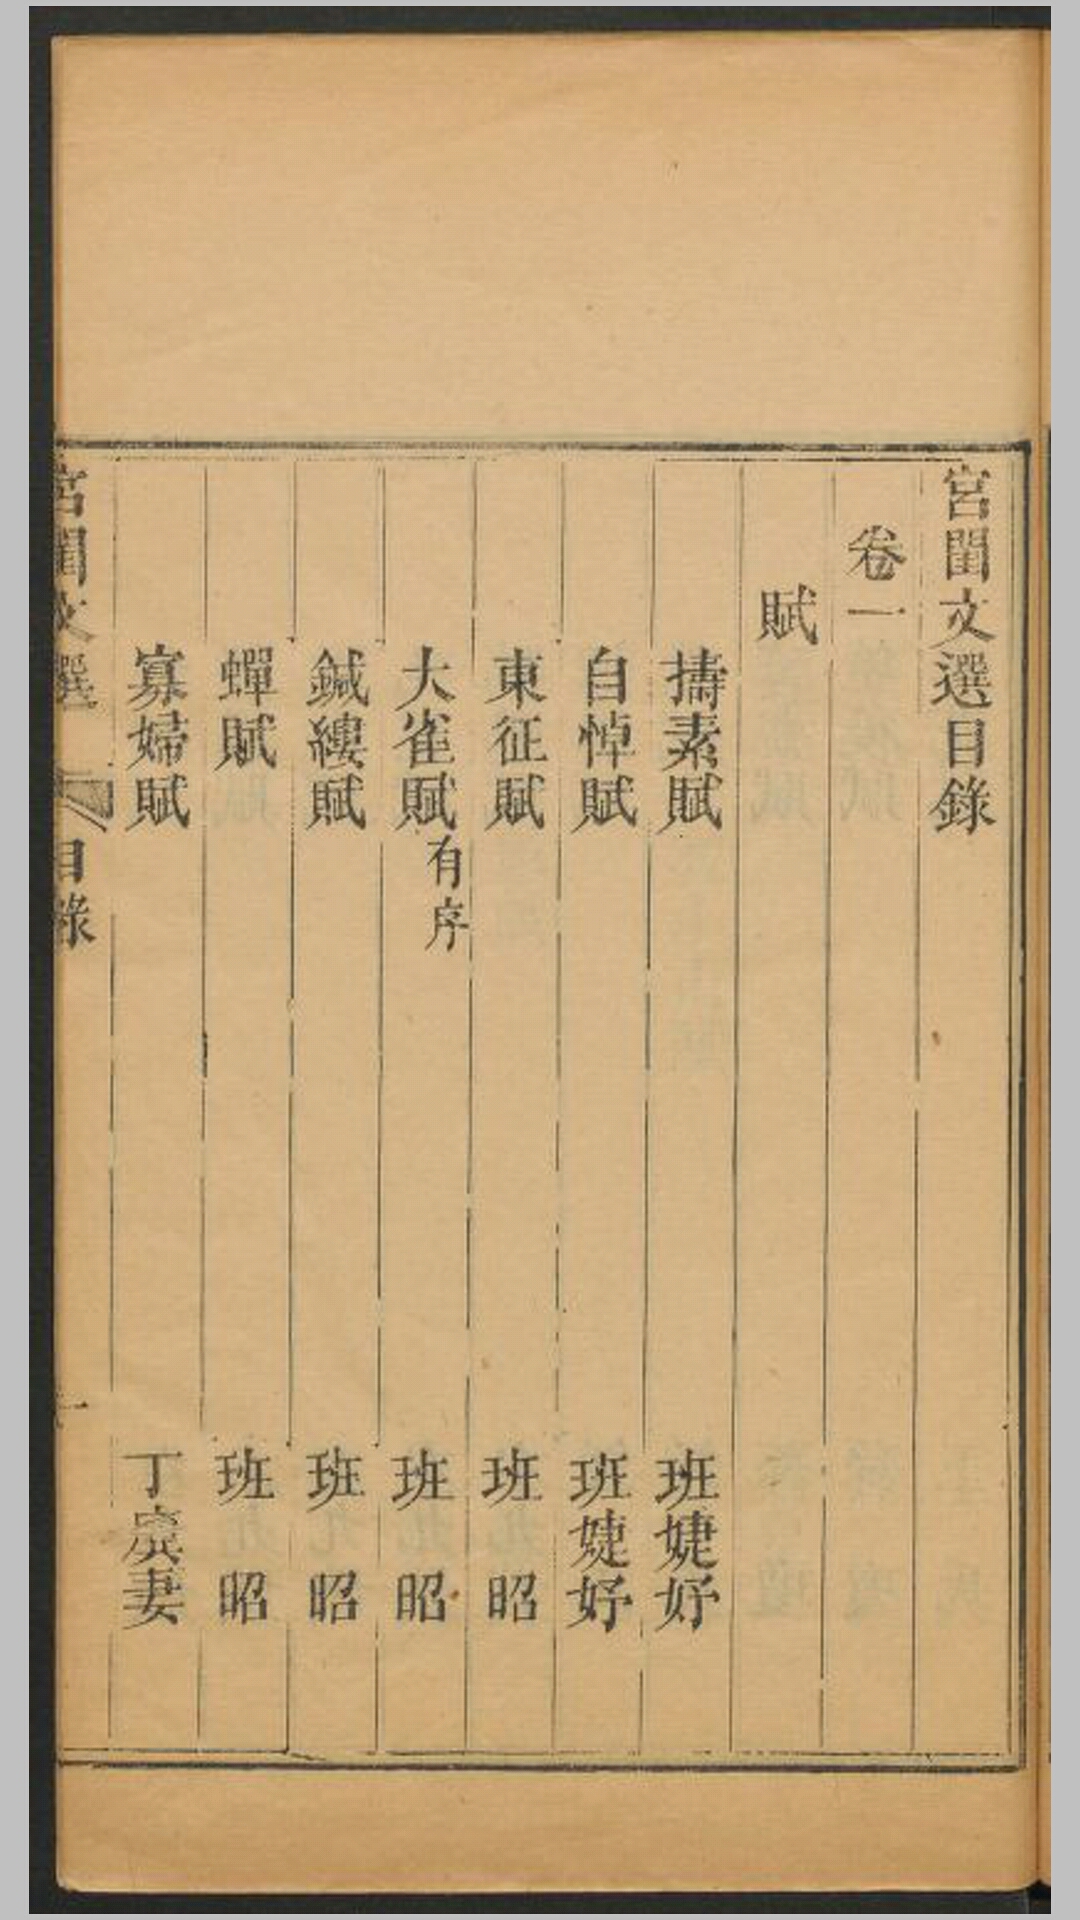 宮閨文選目錄
卷一
賦
擣素賦 班婕妤
自悼賦 班婕妤
東征賦 班昭
大雀賦有序 班昭
鍼縷賦 班昭
蟬賦 班昭
寡婦賦 丁廙妻
宮閨文選 目錄 一